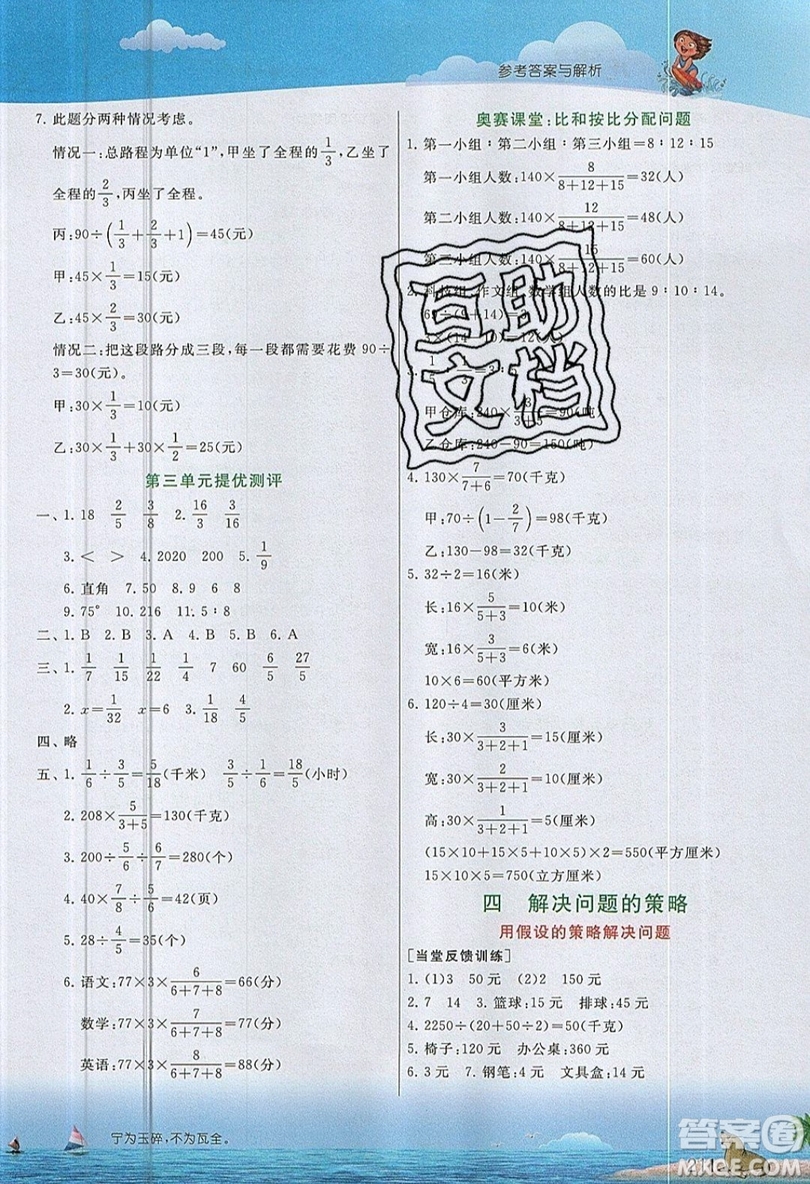 参考答案与解析
7. 此题分两种情况考虑。
情况一:总路程为单位“1”,甲坐了全程的1/3,乙坐了
全程的2/3,丙坐了全程。
丙:90÷(1/3+2/3+1)=45(元)
甲:45×1/3=15(元)
乙:45×2/3=30(元)
情况二:把这段路分成三段,每一段都需要花费 90÷
3=30(元)。
甲:30×1/3=10(元)
乙:30×1/3+30×1/2=25(元)
第三单元提优测评
一、1. 18 2/5 3/8 2. 16/3 3/16
3. < > 4. 2020 200 5. 1/9
6. 直角 7. 50 8. 9 6 8
9. 75° 10. 216 11. 5∶8
二、1. B 2. B 3. A 4. B 5. B 6. A
三、1. 1/7 1/15 2/15 1/4 7 60 6/5 27/5
2. x=1/32 x=6 3. 1/18 4/5
四、略
五、1. 1/6÷3/5=5/18(千米) 3/5÷1/6=18/5(小时)
2. 208×5/(3+5)=130(千克)
3. 200÷5/6÷6/7=280(个)
4. 40×7/8÷5/6=42(页)
5. 28÷4/5=35(个)
6. 语文:77×3×6/(6+7+8)=66(分)
数学:77×3×7/(6+7+8)=77(分)
英语:77×3×8/(6+7+8)=88(分)
奥赛课堂:比和按比分配问题
1. 第一小组∶第二小组∶第三小组=8∶12∶15
第一小组人数:140×8/(8+12+15)=32(人)
第二小组人数:140×12/(8+12+15)=48(人)
第三小组人数:140×15/(8+12+15)=60(人)
2. 科技组、作文组、数学组人数的比是 9∶10∶14。
互助
文档
甲仓库:240×3/(3+5)=90(吨)
乙仓库:240-90=150(吨)
4. 130×7/(7+6)=70(千克)
甲:70÷(1-2/7)=98(千克)
乙:130-98=32(千克)
5. 32÷2=16(米)
长:16×5/(5+3)=10(米)
宽:16×3/(5+3)=6(米)
10×6=60(平方米)
6. 120÷4=30(厘米)
长:30×3/(3+2+1)=15(厘米)
宽:30×2/(3+2+1)=10(厘米)
高:30×1/(3+2+1)=5(厘米)
(15×10+15×5+10×5)×2=550(平方厘米)
15×10×5=750(立方厘米)
四 解决问题的策略
用假设的策略解决问题
[当堂反馈训练]
1. (1)3 50 元 (2)2 150 元
2. 7 14 3. 篮球:15 元 排球:45 元
4. 2250÷(20+50÷2)=50(千克)
5. 椅子:120元 办公桌:360元
6. 3 元 7. 钢笔:4 元 文具盒:14 元
宁为玉碎,不为瓦全。
答案圈